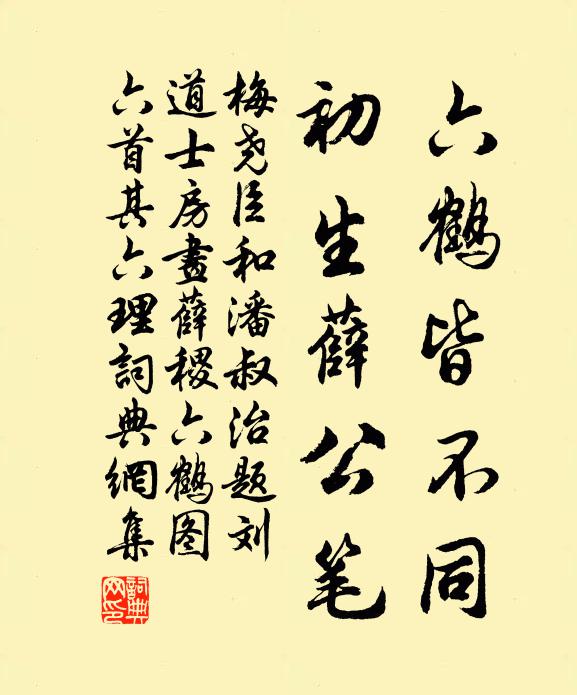 六鹤皆不同
初生薛公笔
梅尧臣和潘叔治题刘
道士房畫薛稷六鶴图
六首其六理詞典網集
詞典网印